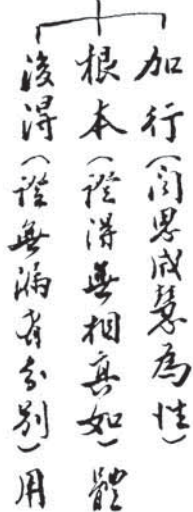 加行(聞思成慧為性)
根本(證得無相真如)體
後得(證無漏有分別)用